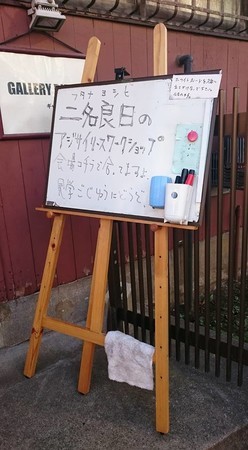 GALLERY
フタナ ヨシヒ
二名良日の
アジサイリースワークショップ
会場コチラで合ってますよ
見学ごじゆうにどうぞ